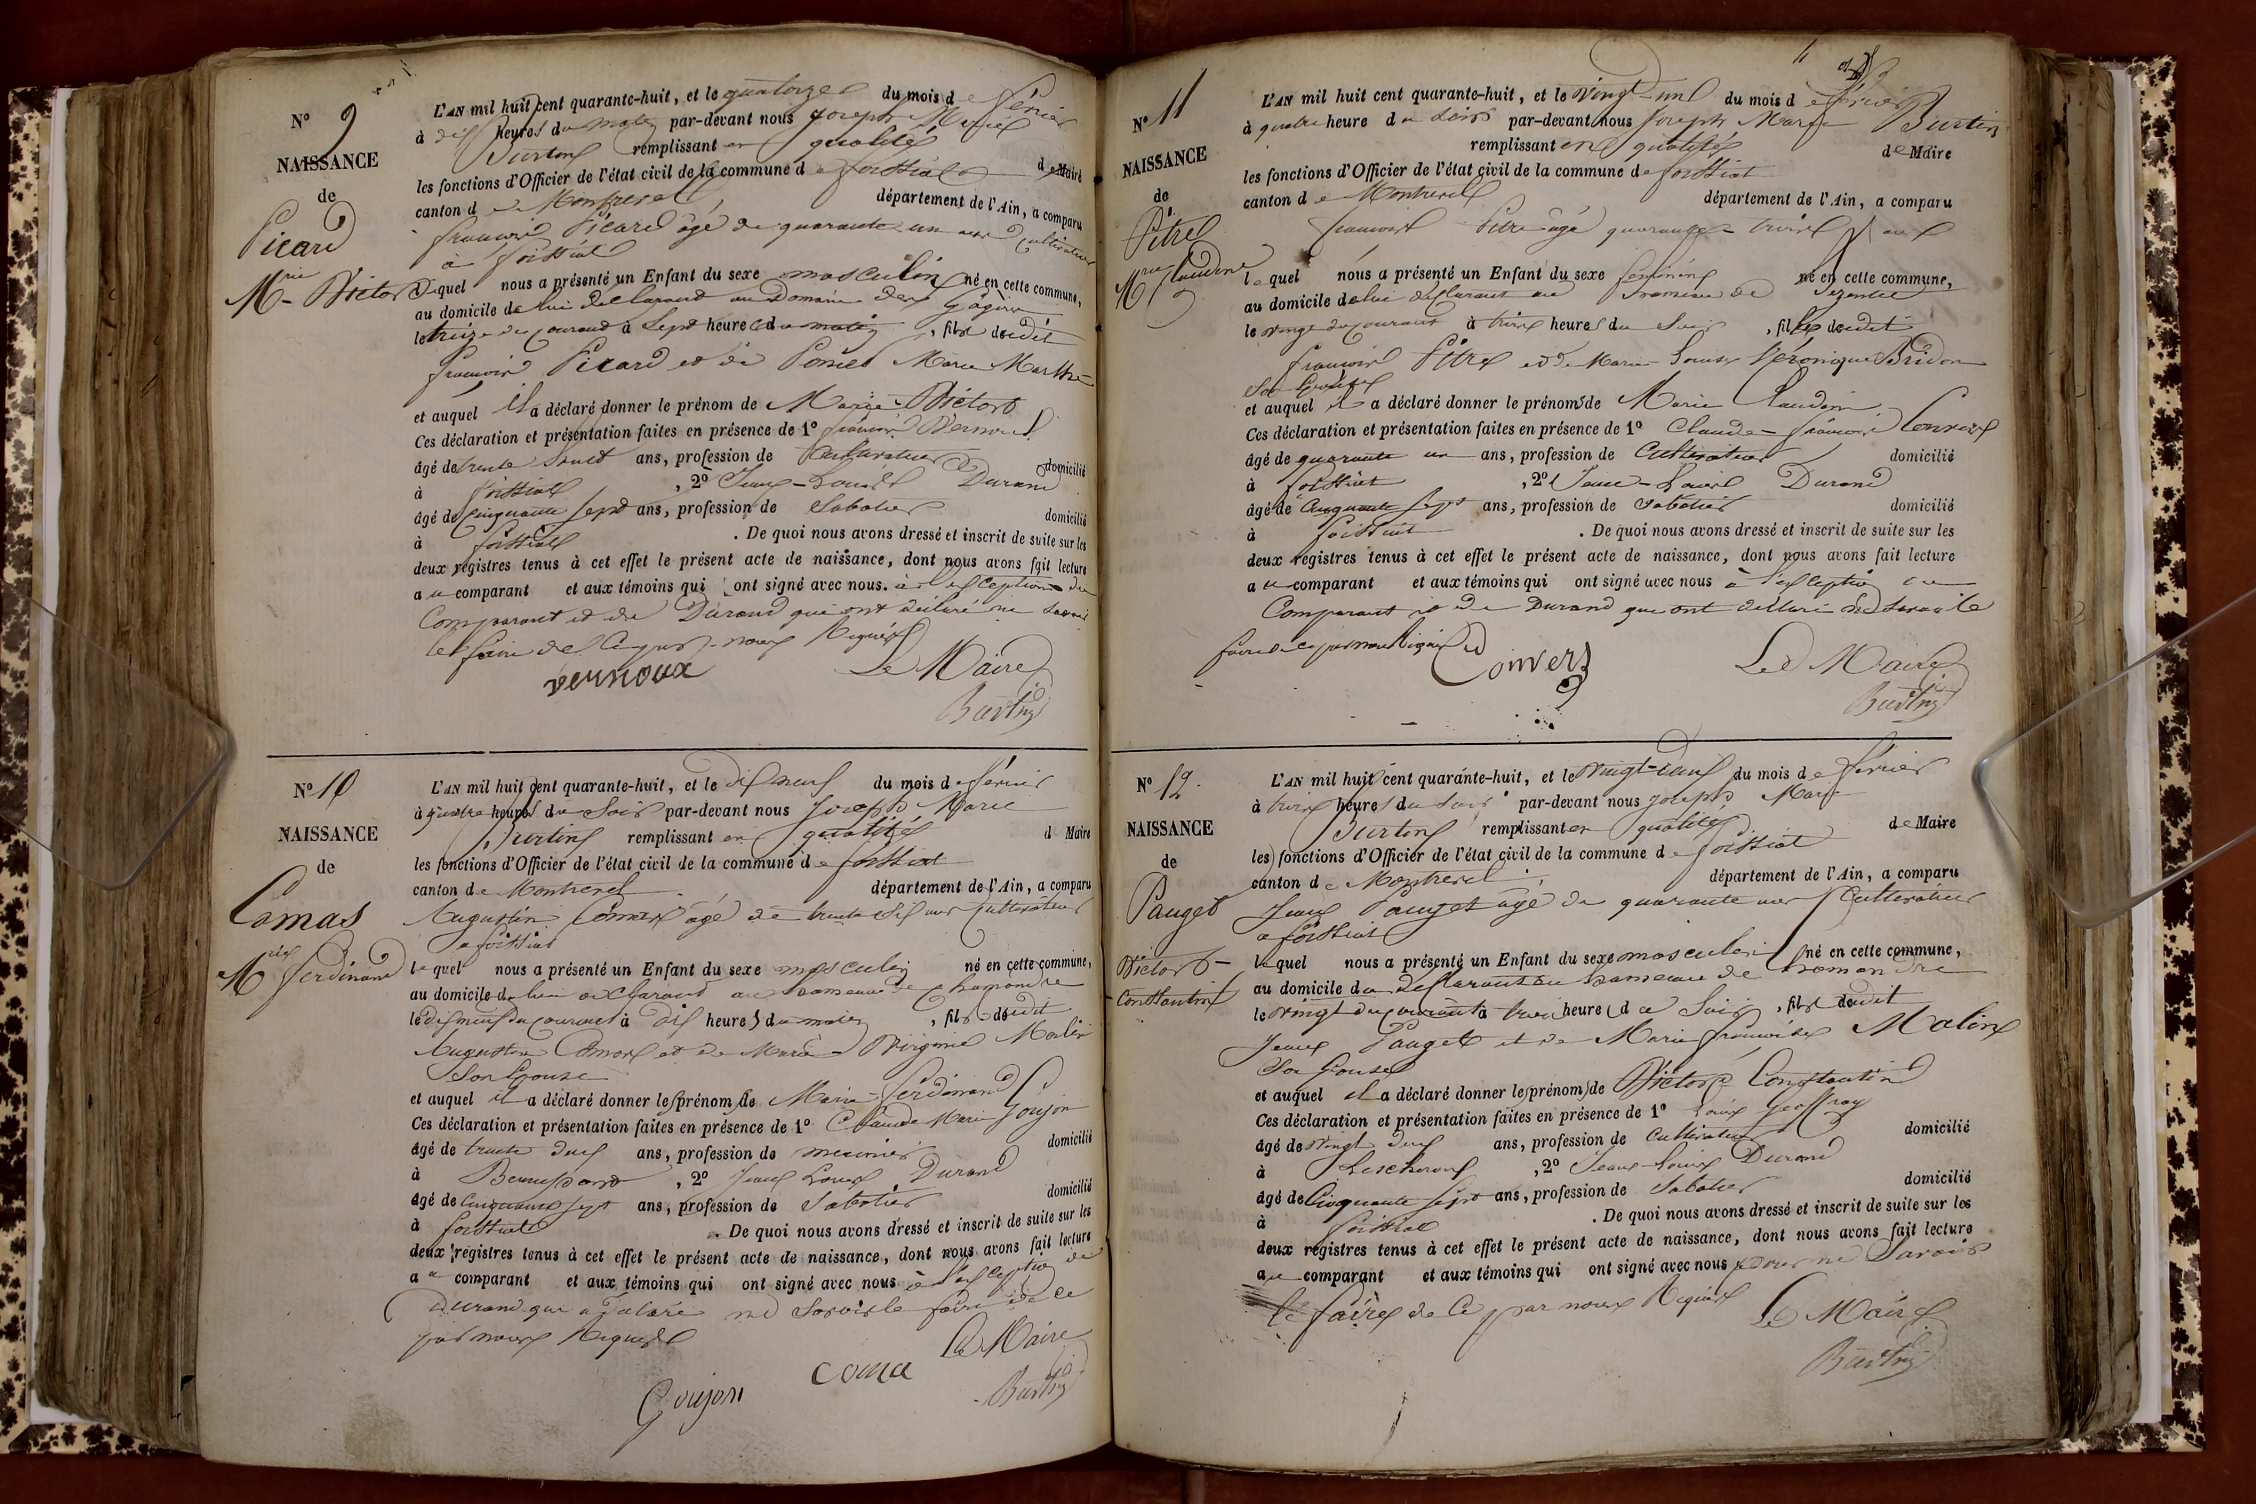 N° 9
NAISSANCE
de
Picard
Mrie Victor
L'AN mil huit cent quarante-huit, et le quatorze du mois de février
à dix heures du matin par-devant nous Joseph Marie
Burtin remplissant en qualité de Maire
les fonctions d'Officier de l'état civil de la commune de foissiat
canton de Montrevel département de l'Ain, a comparu
françois Picard âgé de quarante un ans cultivateur
à foissiat
lequel nous a présenté un Enfant du sexe masculin né en cette commune,
au domicile de lui déclarant au Domaine des
le treize du courant à sept heures du matin, fils dudit
françois Picard et de Marie Marthe
et auquel il a déclaré donner le prénom de Marie-Victor
Ces déclaration et présentation faites en présence de 1° françois Vernoux
âgé de trente ans, profession de cultivateur domicilié
à foissiat, 2° Jean-Louis Durand
âgé de cinquante sept ans, profession de Sabotier domicilié
à foissiat. De quoi nous avons dressé et inscrit de suite sur les
deux registres tenus à cet effet le présent acte de naissance, dont nous avons fait lecture
au comparant et aux témoins qui ont signé avec nous. à l'exception du
Comparant et de Durand qui ont déclaré ne savoir
le faire de ce par nous Requis
vernoux Le Maire
Burtin
N° 10
NAISSANCE
de
Comas
Mrie ferdinand
L'AN mil huit cent quarante-huit, et le dix neuf du mois de février
à quatre heures du Soir par-devant nous Joseph Marie
Burtin remplissant en qualité de Maire
les fonctions d'Officier de l'état civil de la commune de foissiat
canton de Montrevel département de l'Ain, a comparu
Augustin Comas âgé de trente six ans cultivateur
a foissiat
lequel nous a présenté un Enfant du sexe masculin né en cette commune,
au domicile de lui déclarant au hameau de
le dix neuf du courant à dix heures du matin, fils dudit
Augustin Comas et de Marie-Virginie
Son Epouse
et auquel il a déclaré donner les prénom de Marie-ferdinand
Ces déclaration et présentation faites en présence de 1° Claude Marie Goujon
âgé de trente deux ans, profession de meunier domicilié
à, 2° Jean Louis Durand
âgé de cinquante sept ans, profession de Sabotier domicilié
à foissiat. De quoi nous avons dressé et inscrit de suite sur les
deux registres tenus à cet effet le présent acte de naissance, dont nous avons fait lecture
au comparant et aux témoins qui ont signé avec nous à l'exception de
Durand qui a déclaré ne Savoir le faire de ce
par nous Requis
Le Maire
Goujon coma Burtin
N° 11
NAISSANCE
de
Pitre
Mrie Claudine
L'AN mil huit cent quarante-huit, et le vingt-un du mois de février
à quatre heure du soir par-devant nous Joseph Marie Burtin
remplissant en qualité de Maire
les fonctions d'Officier de l'état civil de la commune de foissiat
canton de Montrevel département de l'Ain, a comparu
françois Pitre âgé quarante-trois ans
lequel nous a présenté un Enfant du sexe féminin né en cette commune,
au domicile de lui déclarant au hameau de
le vingt du courant à trois heures du Soir, fille dudit
françois Pitre et de Marie-Louise Véronique Bridon
Son Epouse
et auquel il a déclaré donner le prénoms de Marie Claudine
Ces déclaration et présentation faites en présence de 1° Claude-françois Convers
âgé de quarante un ans, profession de Cultivateur domicilié
à foissiat, 2° Jean-Louis Durand
âgé de Cinquante sept ans, profession de Sabotier domicilié
à foissiat. De quoi nous avons dressé et inscrit de suite sur les
deux registres tenus à cet effet le présent acte de naissance, dont nous avons fait lecture
au comparant et aux témoins qui ont signé avec nous à l'exception du
Comparant et de Durand qui ont déclaré ne savoir le
faire de ce par nous Requis
Convers Le Maire
Burtin
N° 12
NAISSANCE
de
Pauget
Victor
Constantin
L'AN mil huit cent quarante-huit, et le vingt-deux du mois de février
à trois heures du soir par-devant nous Joseph Marie
Burtin remplissant en qualité de Maire
les fonctions d'Officier de l'état civil de la commune de foissiat
canton de Montrevel département de l'Ain, a comparu
Jean Pauget âgé de quarante ans Cultivateur
a foissiat
lequel nous a présenté un Enfant du sexe masculin né en cette commune,
au domicile du déclarant au hameau de
le vingt du courant à trois heure du Soir, fils dudit
Jean Pauget et de Marie françoise
Son Epouse
et auquel il a déclaré donner les prénoms de Victor Constantin
Ces déclaration et présentation faites en présence de 1° Louis Geoffray
âgé de vingt deux ans, profession de Cultivateur domicilié
à Lescheroux, 2° Jean-Louis Durand
âgé de Cinquante sept ans, profession de Sabotier domicilié
à foissiat. De quoi nous avons dressé et inscrit de suite sur les
deux registres tenus à cet effet le présent acte de naissance, dont nous avons fait lecture
au comparant et aux témoins qui ont signé avec nous pour ne Savoir
le faire de Ce par nous Requis Le Maire
Burtin